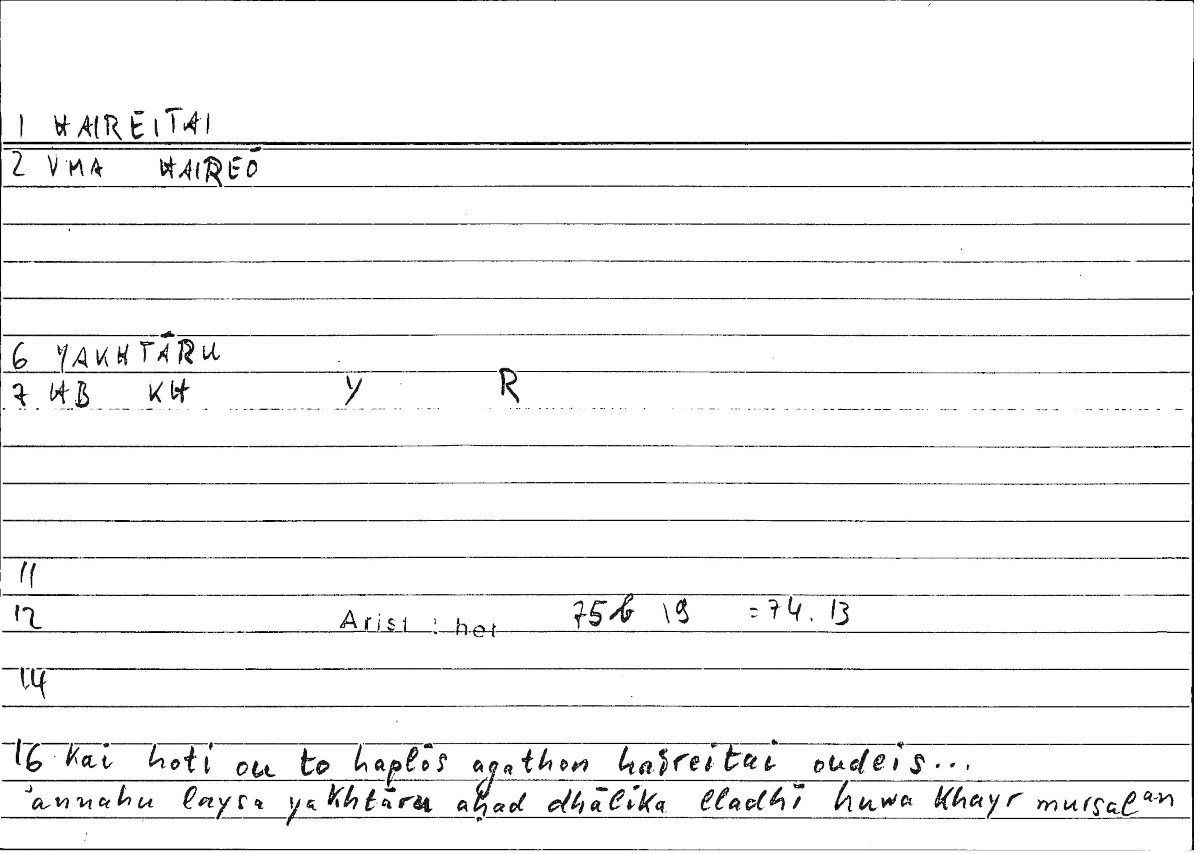 1 HAIREITAI
2 VMA HAIREŌ
6 YAKHTĀRU
7 HB KH Y R
11
12 Arist : het 75b 19 =74.13
14
16 Kai hoti ou to haplōs agathon haireitai oudeis...
'annahu laysa yakhtāru aḥad dhālika lladhī huwa khayr mursalan